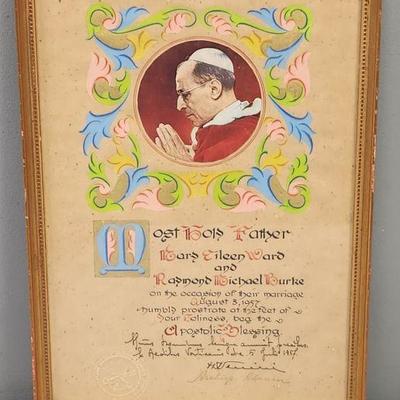 Most Holy Father
Mary Eileen Ward
and
Raymond Michael Burke
on the occasion of their marriage
August 3, 1957
humbly prostrate at the feet of
Your Holiness, beg the
Apostolic Blessing